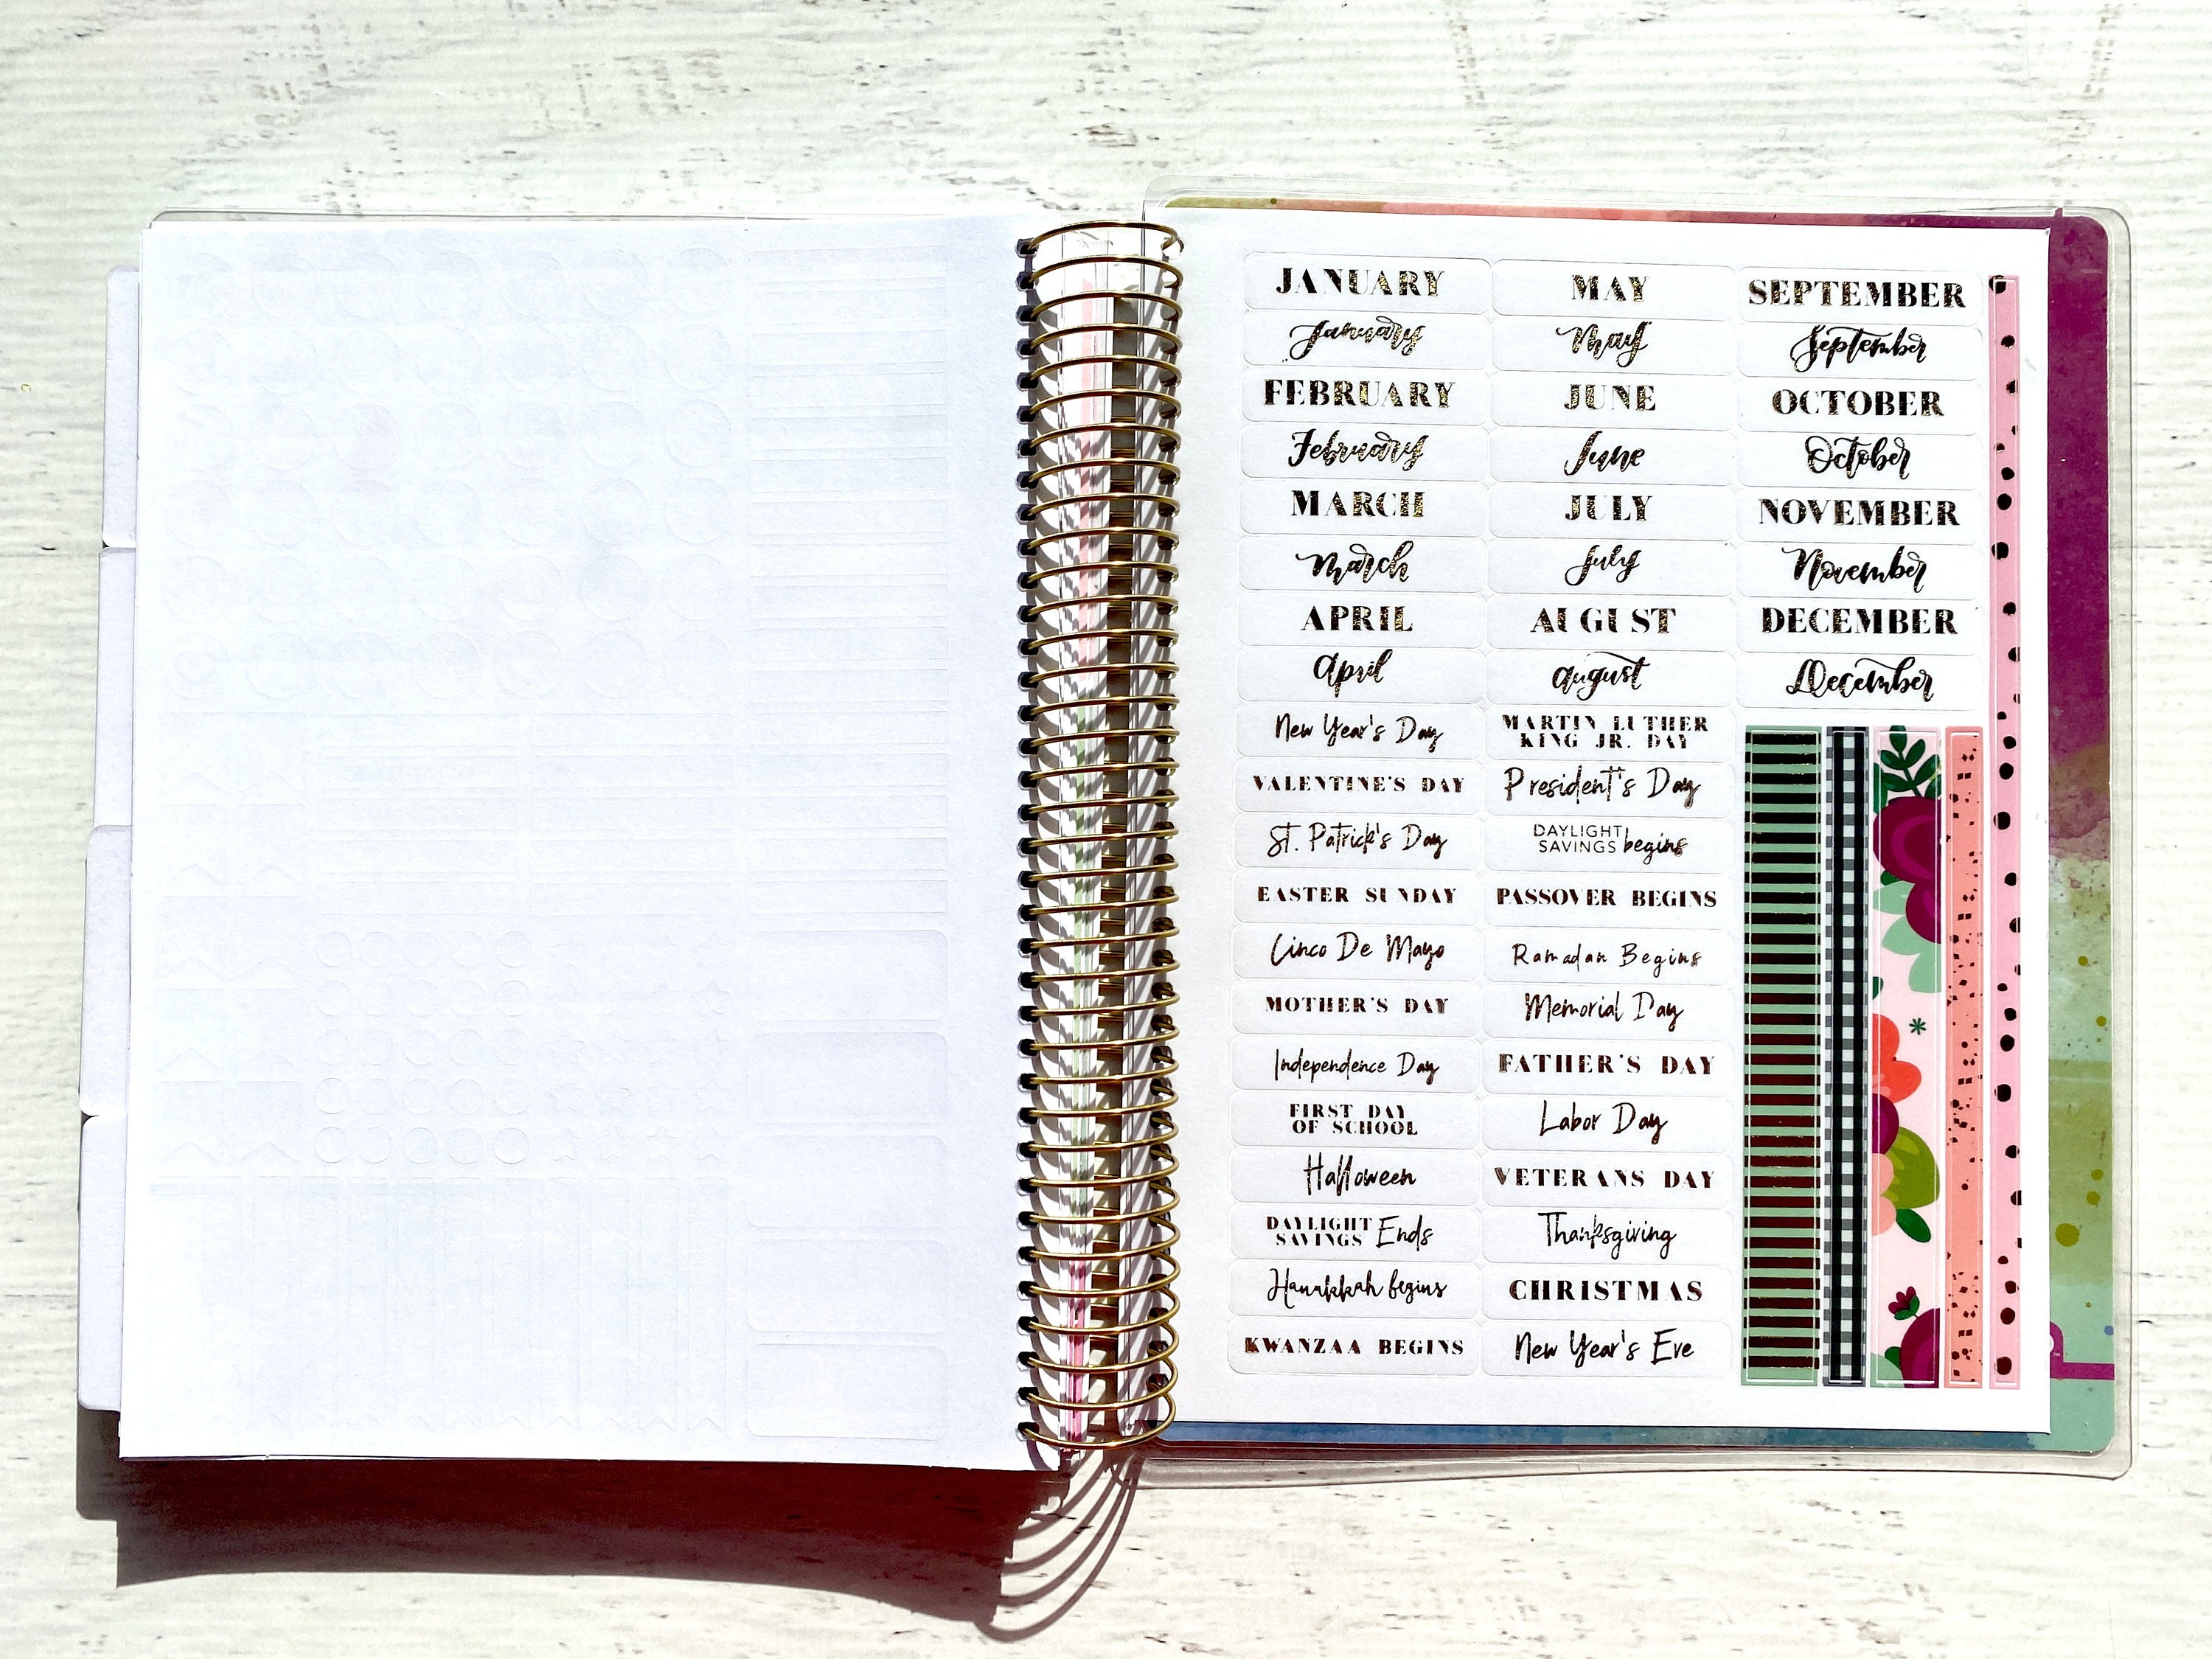 JANUARY
January
FEBRUARY
February
MARCH
March
APRIL
April
MAY
May
JUNE
June
JULY
July
AUGUST
August
SEPTEMBER
September
OCTOBER
October
NOVEMBER
November
DECEMBER
December
New Year's Day
VALENTINE'S DAY
St. Patrick's Day
EASTER SUNDAY
Cinco De Mayo
MOTHER'S DAY
Independence Day
FIRST DAY
OF SCHOOL
Halloween
DAYLIGHT
SAVINGS Ends
Hanukkah begins
KWANZAA BEGINS
MARTIN LUTHER
KING JR. DAY
President's Day
DAYLIGHT
SAVINGS begins
PASSOVER BEGINS
Ramadan Begins
Memorial Day
FATHER'S DAY
Labor Day
VETERANS DAY
Thanksgiving
CHRISTMAS
New Year's Eve